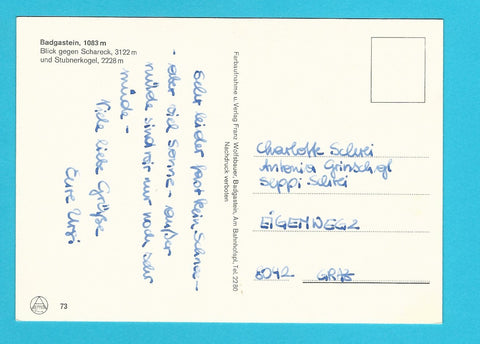 Badgastein, 1083 m
Blick gegen Schareck, 3122 m
und Stubnerkogel, 2228 m
sehr leider fast kein Schnee -
- aber viel Sonne - außer
müde sind wir nur noch sehr
müde -
Viele liebe Grüße
Eure Ursi
73
Farbaufnahme u. Verlag Franz Wolfsbauer, Badgastein, Am Bahnhofspl., Tel. 2280
Nachdruck verboten
Charlotte
Antonia
Seppi
EIGENWEG 2
8042 GRAZ